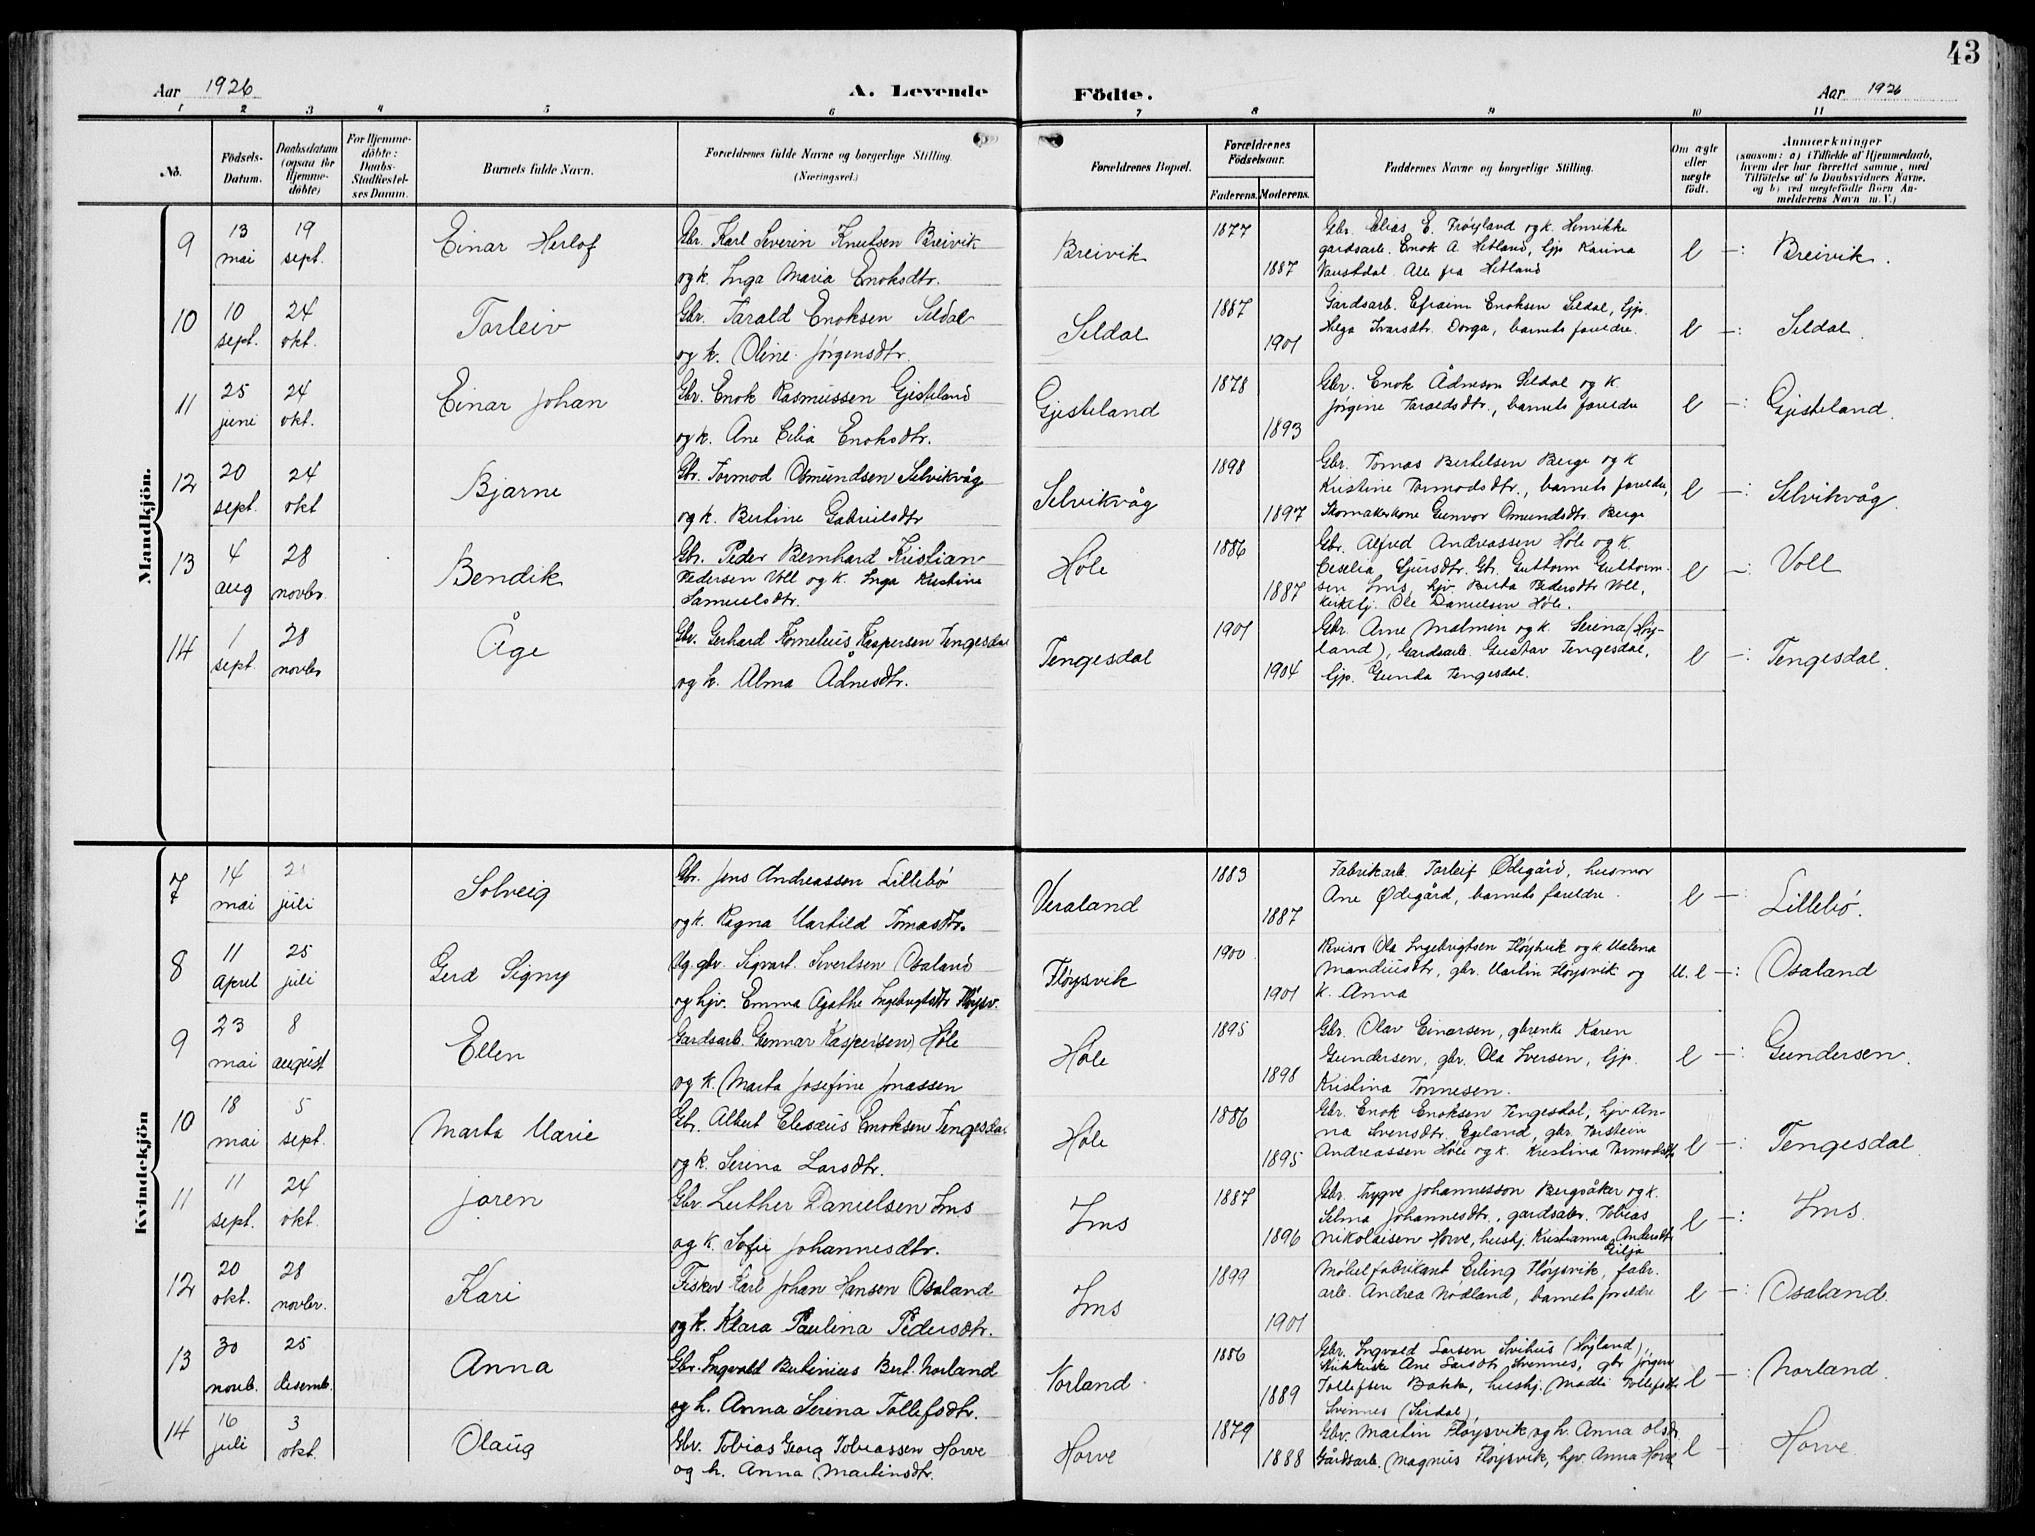 43
Aar 1926
A. Levende
Födte.
Aar 1926
1 2 3 4 5 6 7 8 9 10 11
No.
Födsels-Datum.
Daabsdatum (ogsaa for Hjemme-döbte)
For Hjemme-döbte: Daabs-Stadfæstel-ses Datum.
Barnets fulde Navn.
Forældrenes fulde Navne og borgerlige Stilling. (Næringsvei.)
Forældrenes Bopæl.
Forældrenes Födselsaar.
Faderens. Moderens.
Faddernes Navne og borgerlige Stilling.
Om ægte eller uægte födt.
Anmærkninger
(saasom: a) i Tilfælde af Hjemmedaab, hvem der har forrettet samme, med Tilföielse af to Daabsvidners Navne, og b) ved uægtefödte Börn An-melderens Navn m. V.)
Mandkjön.
9 13 mai 19 sept. Einar Herlof
Gbr. Karl Severin Knutsen Breivik
og k. Inga Maria Enoksdtr.
Breivik 1877 1887
Gbr. Elias E. Frøyland og k. Henrikke
gardsarb. Enok A. Hetland, Gjp. Karina
Vaustdal. Alle fra Hetland
l —: Breivik.
10 10 sept. 24 okt. Torleiv
Gbr. Tarald Enoksen Seldal
og h. Oline Jørgensdtr.
Seldal 1887 1901
Gardsarb. Efraim Enoksen Seldal, Gjp.
Helga Ivarsdtr. Dorga, barnets foreldre.
l —: Seldal.
11 25 juni 24 okt. Einar Johan
Gbr. Enok Rasmussen Gjesteland
og k. Ane Celia Enoksdtr.
Gjesteland 1878 1893
Gbr. Enok Ådnesen Seldal og k.
Jørgine Taraldsdtr., barnets foreldre
l —: Gjesteland.
12 20 sept. 24 okt Bjarne
Gbr. Tormod Osmundsen Selvikvåg
og k. Bertine Gabrielsdtr
Selvikvåg 1898 1897
Gbr. Tomas Bertelsen Berge og k
Kristine Tormodsdtr., barnets foreldre,
Skomakerkone Gunvor Omundsdtr. Berge
l —: Selvikvåg.
13 4 aug 28 novbr Bendik
Gbr. Peder Bernhard Kristian
Pedersen Voll og k. Inga Kristine
Samuelsdtr.
Høle 1886 1887
Gbr. Alfred Andreassen Høle og k.
Ceselia Sjursdtr. Gbr. Guttorm Guttorm-
sen Ims, hjv. Berta Pedersdtr Voll,
kirketj. Ole Danielsen Høle.
l —: Voll
14 1 sept. 28 novbr Åge
Gbr. Gerhard Kornelius Kaspersen Tengesdal
og h. Alma Ådnesdtr.
Tengesdal 1901 1904
Gbr. Arne Malmin og k. Serina (Høy-
land), Gardsarb. Gustav Tengesdal,
Gjp. Gunda Tengesdal.
l —: Tengesdal.
Kvindekjön
7 14 mai juli Solveig
Gbr. Jens Andreassen Lillebø
og k. Ragna Martild Tomasdtr.
Veraland 1883 1887
Fabrikarb. Torleif Ødegård, husmor
Ane Ødegård, barnets foreldre.
l —: Lillebø.
8 11 April 25 juli Gerd Signy
Ug. gbr. Sigvart Sivertsen Osaland
og hjv. Emma Agathe Ingebrigtsdtr Fløysv.
Fløysvik 1900 1901
Revisor Ola Ingebrigtsen Fløysvik og k Malena
Mandiusdtr, gbr. Martin Fløysvik og
k. Anna
u. l —: Osaland
9 23 mai 8 august Ellen
Gardsarb. Gunnar Kaspersen Høle
og k. Marta Josefine Jonassen
Høle 1895 1898
Gbr. Olav Einarsen, gbrenke Karen
Gundersen, gbr. Ola Iversen, Gjp.
Kristina Tønnesen.
l —: Gundersen.
10 18 mai 5 sept. Marta Marie
Gbr. Albert Eleseus Enoksen Tengesdal
og k. Serina Larsdtr.
Høle 1886 1895
Gbr. Enok Enoksen Tengesdal, hjv An-
na Svensdtr. Egeland, gbr. Torstein
Andreassen Høle og k. Kristina Tormodsdtr
l —: Tengesdal
11 11 sept. 24 okt. Joren
Gbr. Luther Danielsen Ims
og k. Sofie Johannesdtr.
Ims 1887 1896
Gbr. Trygve Johannesson Bergsåker og k.
Selma Johannesdtr., gardsabr. Tobias
Nikolaisen Horve, hushj. Kristianna Andersdtr
Gilja
l —: Ims.
12 20 okt. 28 novbr. Kari
Fisker Karl Johan Hansen Osaland
og k. Klara Paulina Pedersdtr.
Ims 1899 1901
Møbelfabrikant Erling Fløysvik, fabr.
arb. Andrea Nødland, barnets foreldre
l —: Osaland.
13 30 novb. 25 desemb. Anna
Gbr. Ingvald Bertinius Bert. Norland
og h. Anna Serina Tollefsdtr.
Norland 1886 1889
Gbr. Ingvald Larsen Svihus (Høyland),
Ane Larsdtr Svennes, gbr Jørgen
Tollefsen Bakk, hushj. Madli Tollefsdtr
Svinnes (Sirdal)
l —: Norland.
14 16 juli 3 okt. Olaug
Gbr. Tobias Georg Tobiassen Horve
og h. Anna Martinsdtr.
Horve 1879 1888
Gbr. Martin Fløysvik og h. Anna Olsdtr.
Gårdsarb. Magnus Fløysvik, hjv. Anna Horve
l —: Horve.